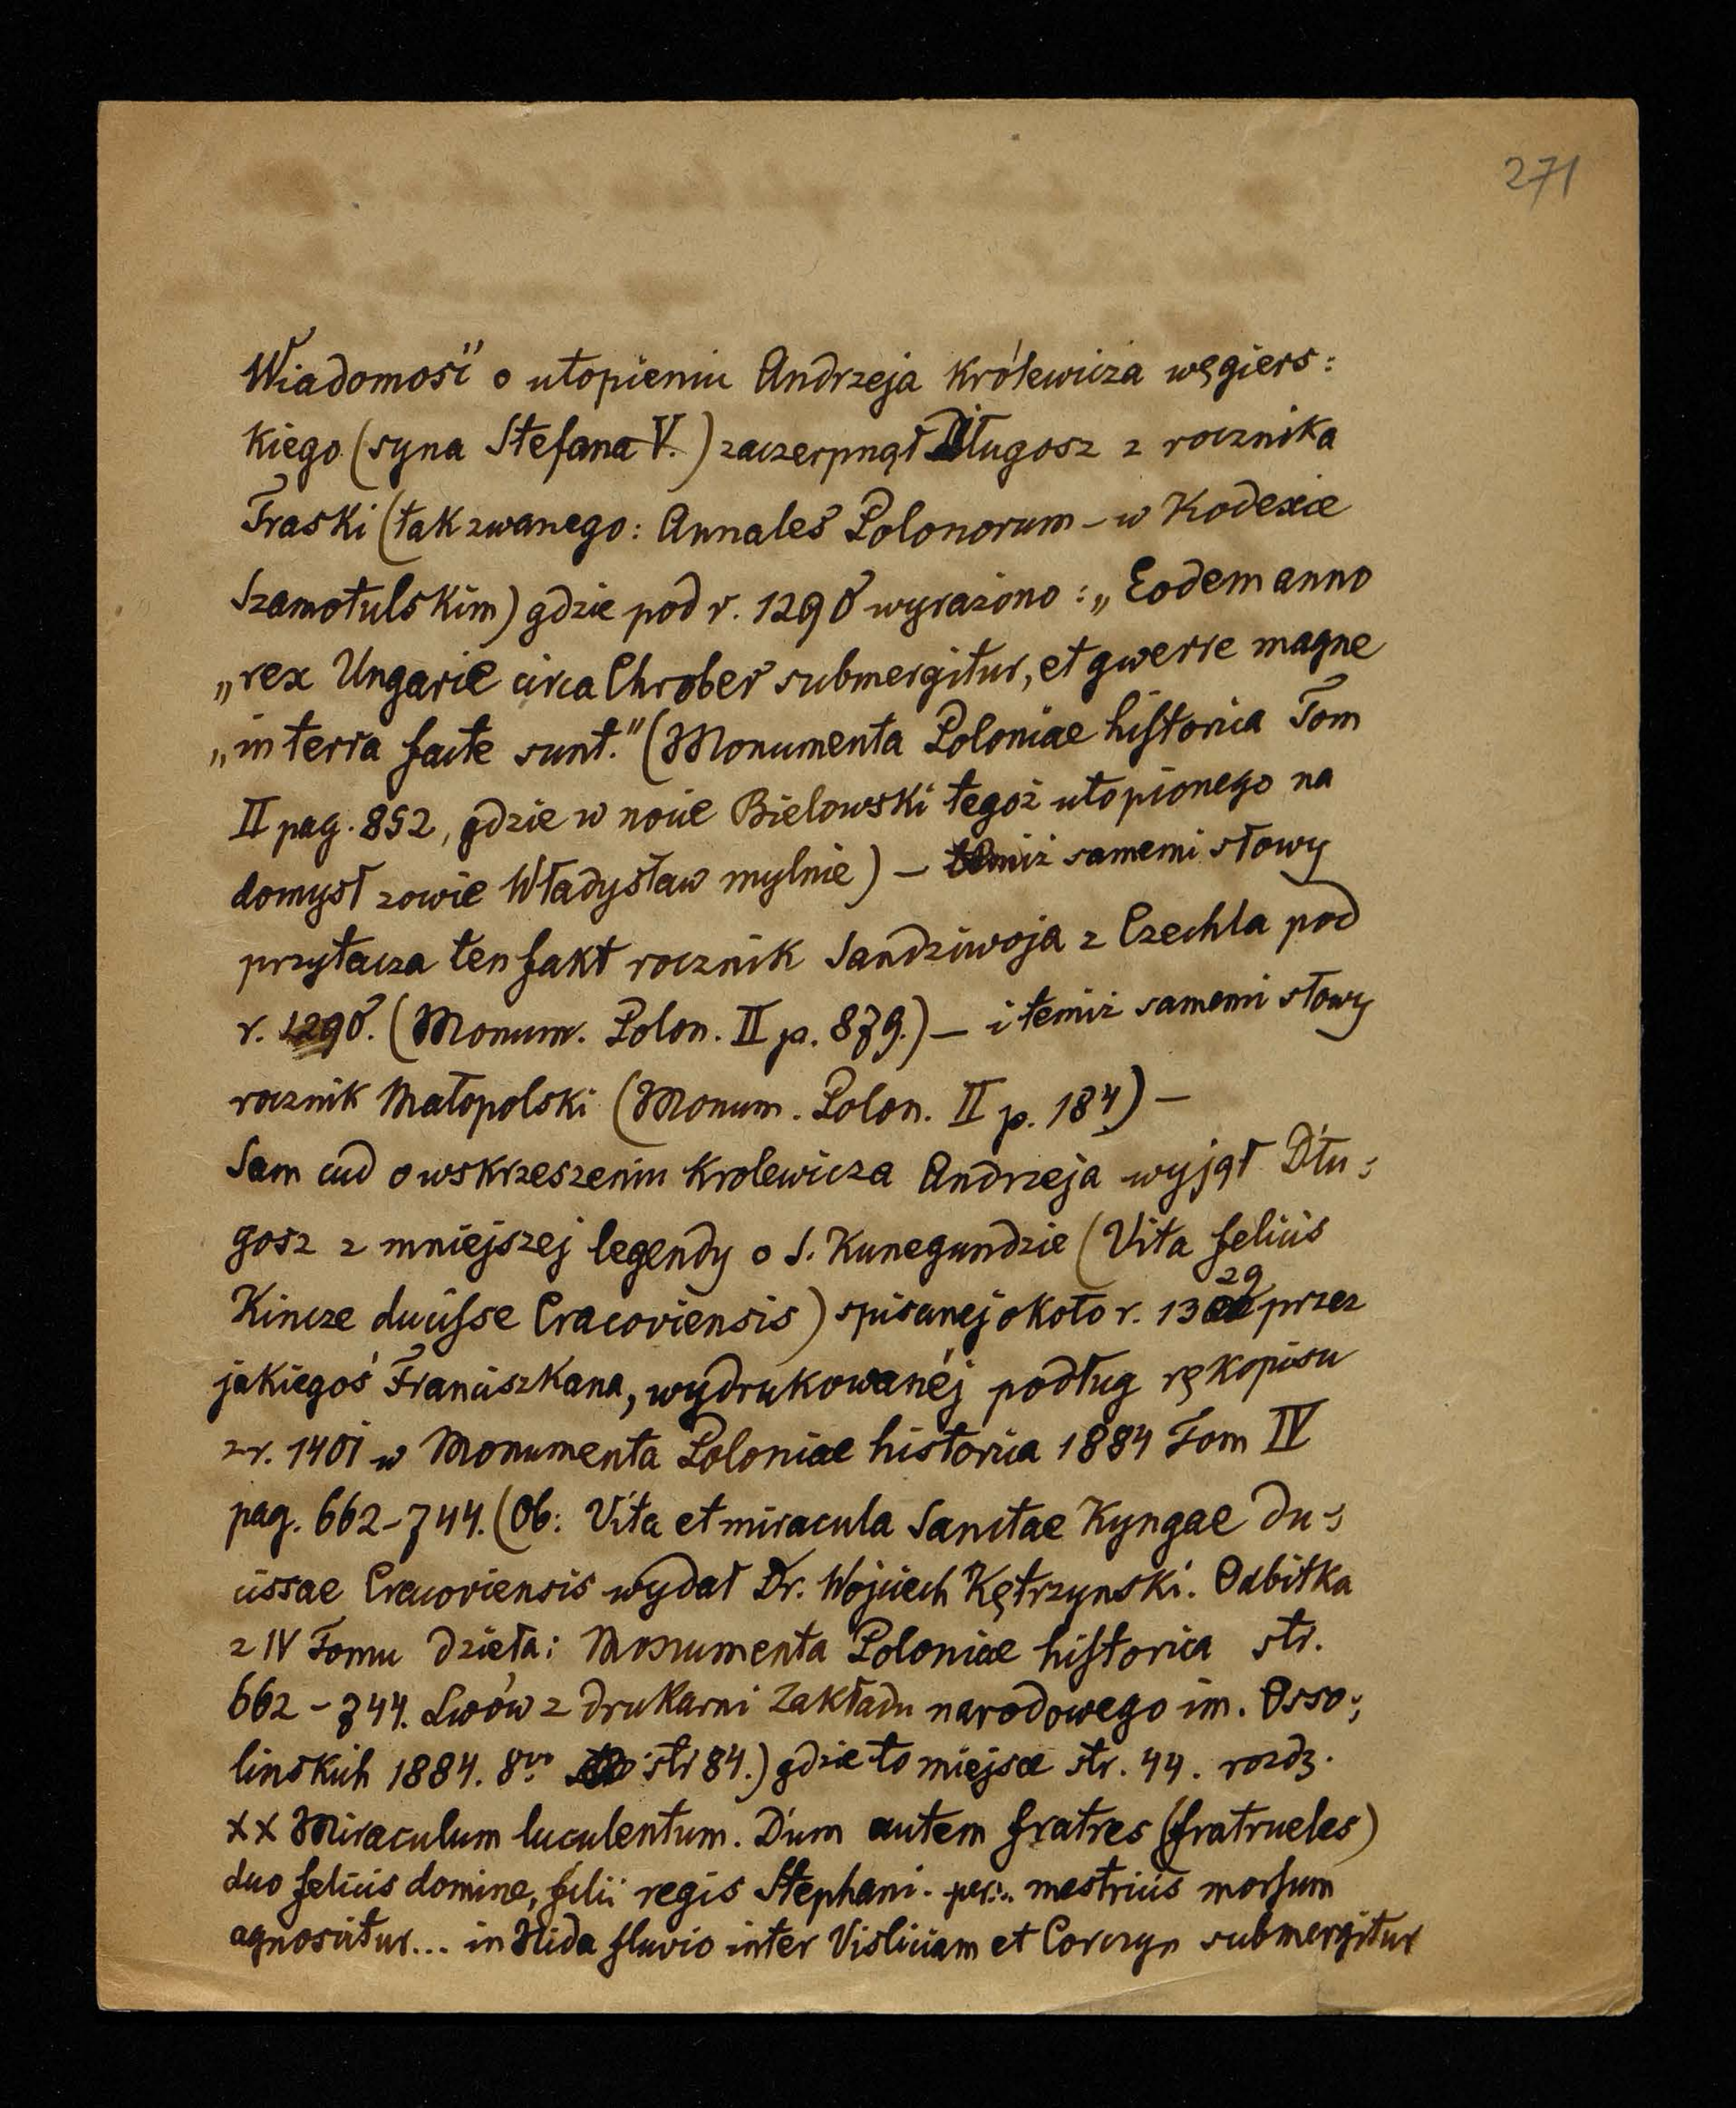 271
Wiadomość o utopieniu Andrzeja Królewicza węgiers:
kiego (syna Stefana V.) zaczerpnął Długosz z rocznika
Traski (tak zwanego: Annales Polonorum – w Kodexie
Szamotulskim) gdzie pod r. 1290 wyrażono: „Eodem anno
„rex Ungarie circa Chrober submergitur, et gwerre magne
„in terra facte sunt." (Monumenta Poloniae historica Tom
II pag. 852, gdzie w nocie Bielowski tegoż utopionego na
domysł zowie Władysław mylnie) – temiż samemi słowy
przytacza ten fakt rocznik Sandziwoja z Czechla pod
r. 1290. (Monum. Polon. II p. 879.) – i temiż samemi słowy
rocznik Małopolski (Monum. Polon. II p. 184) –
Sam cud o wskrzeszeniu Krolewicza Andrzeja wyjął Dłu:
gosz z mniejszej legendy o S. Kunegundzie (Vita felicis
Kincze ducisse Cracoviensis) spisanej około r. 1329 przez
jakiegoś Franciszkana, wydrukowanéj podług rękopisu
z r. 1401 w Monumenta Poloniae historica 1884 Tom IV
pag. 662–744. (Ob: Vita et miracula Sanctae Kyngae du:
cissae Cracoviensis wydał Dr. Wojciech Kętrzynski. Odbitka
z IV Tomu dzieła: Monumenta Poloniae historica str.
662–744. Lwów z drukarni Zakładu narodowego im. Osso:
linskich 1884. 8vo str 84.) gdzie to miejsce str. 44. rozdz.
XX Miraculum luculentum. Dum autem fratres (fratrueles)
duo felicis domine, filii regis Stephani. mestricis morsum
agnoscitur... in Nida fluvio inter Visliciam et Corczyn submergitur